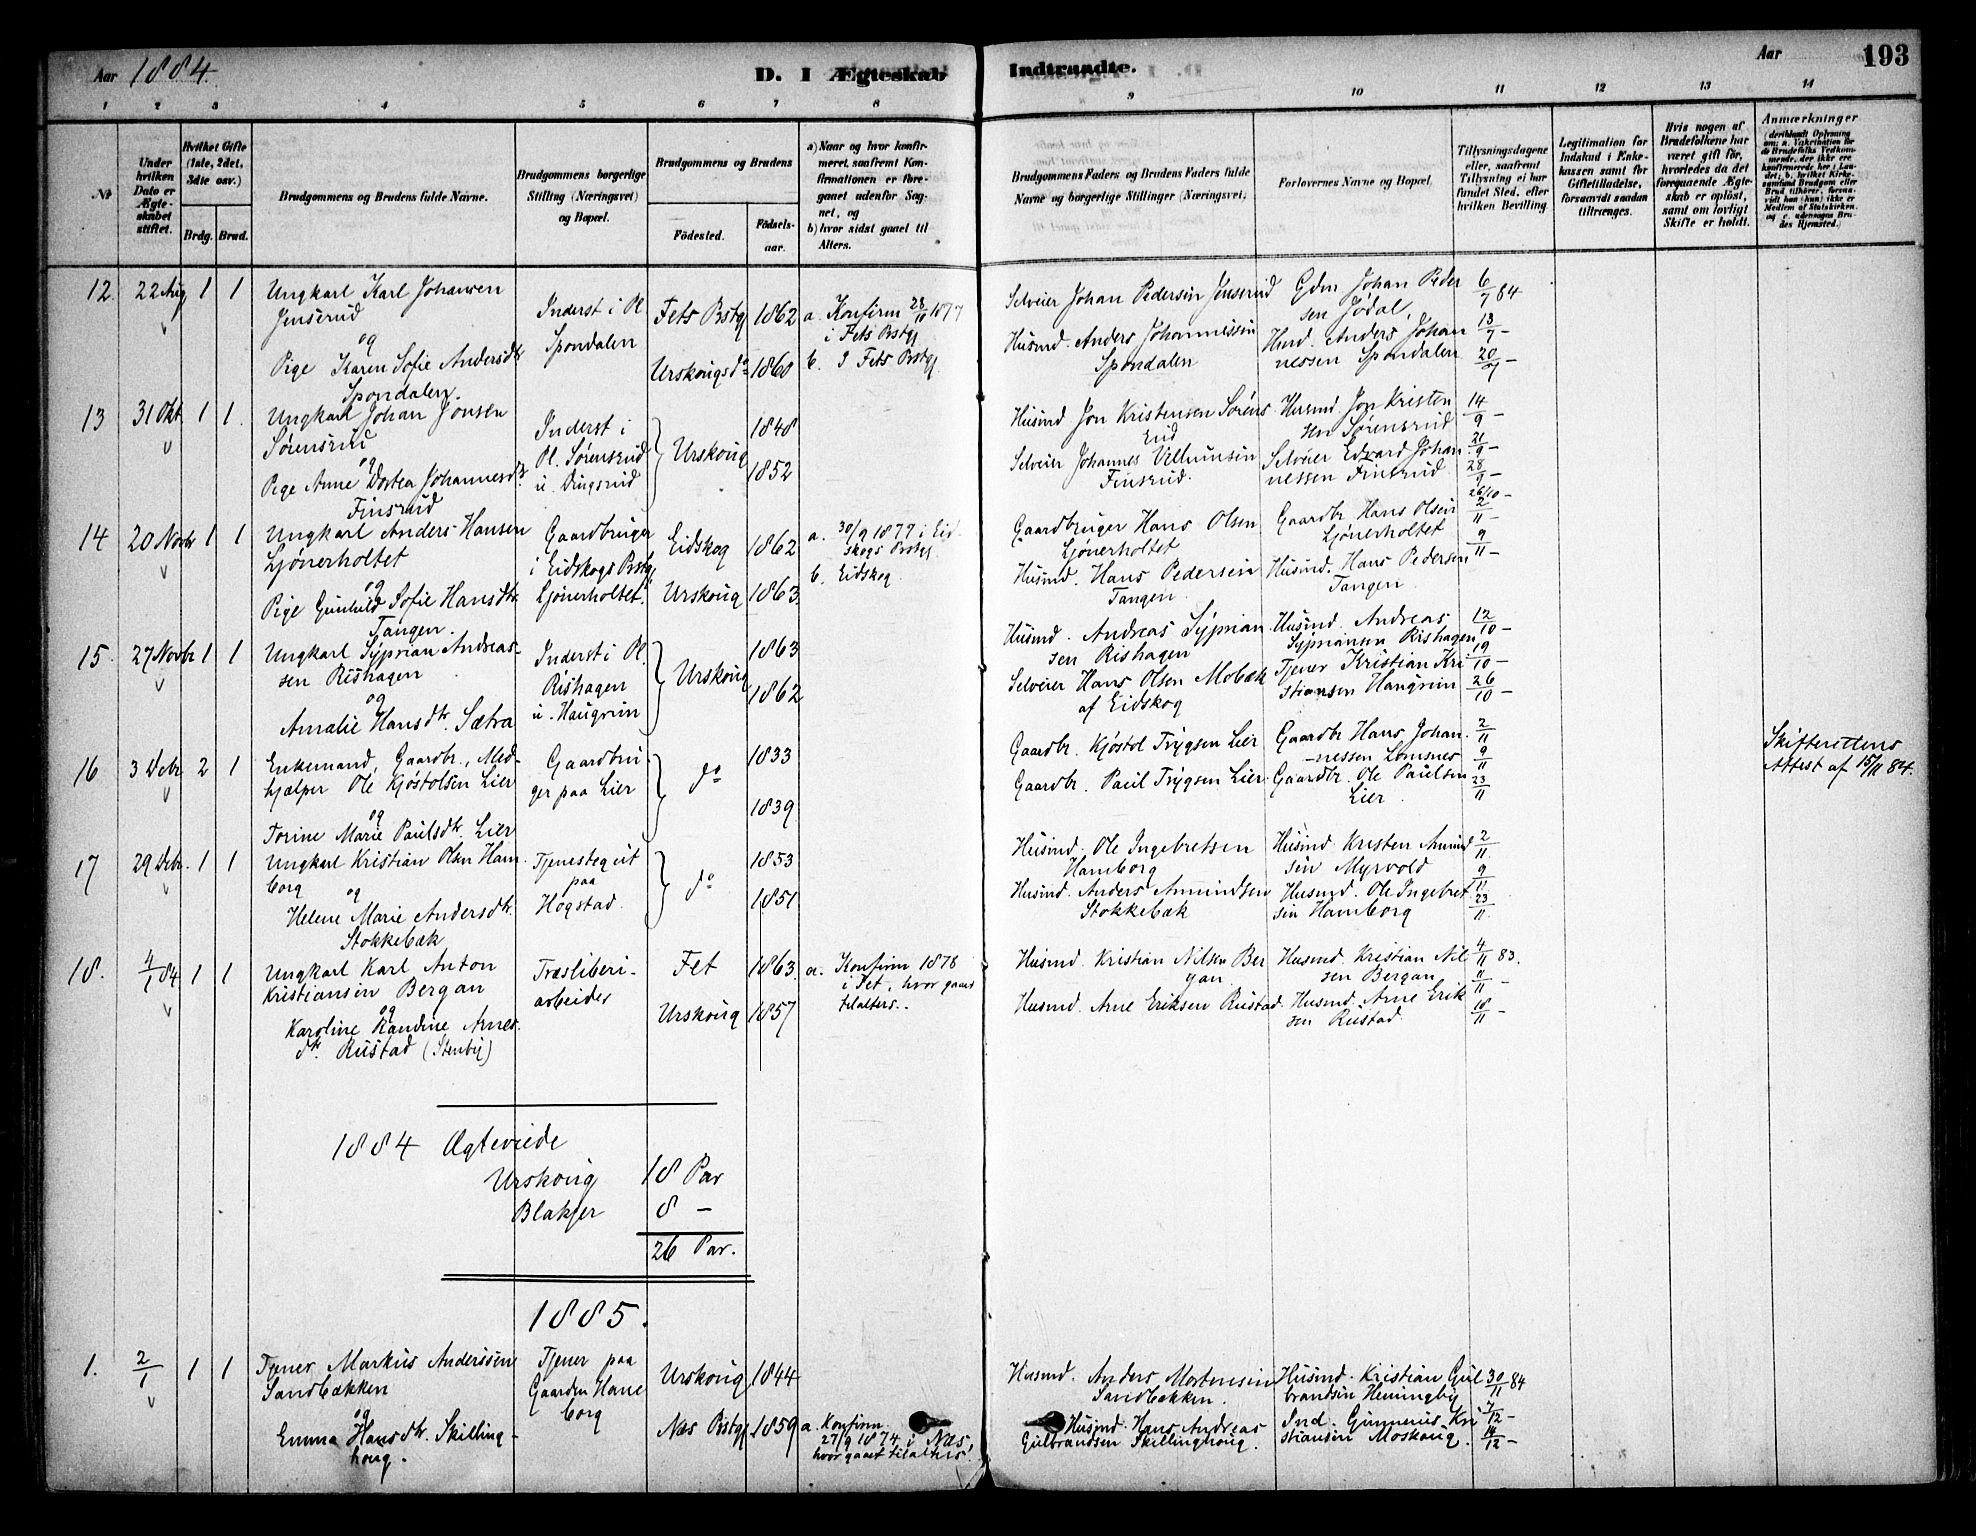 Aar 1884.
D. I Ægteskab Indtraadte.
Aar
193
1 2 3 4 5 6 7 8 9 10 11 12 13 14
No
Under hvilken Dato er Ægteskabet stiftet.
Hvilket Gifte (1ste, 2det, 3die osv.)
Brdg. Brud.
Brudgommens og Brudens fulde Navne.
Brudgommens borgerlige Stilling (Næringsvei) og Bopæl.
Brudgommens og Brudens
Födested. Födsels-aar.
a) Naar og hvor konfirmeret, saafremt Konfirmationen er foregaaet udenfor Sognet, og
b) hvor sidst gaaet til Alters.
Brudgommens Faders og Brudens Faders fulde Navne og borgerlige Stillinger (Næringsvei).
Forlovernes Navne og Bopæl.
Tillysningsdagene eller, saafremt Tillysning ei har fundet Sted, efter hvilken Bevilling.
Legitimation for Indskud i Enkekassen samt for Giftetilladelse, forsaavidt saadan tiltrænges.
Hvis nogen af Brudefolkene har været gift för, hvorledes da det foregaaende Ægteskab er oplöst, samt om lovligt Skifte er holdt.
Anmærkninger
12. 22 Aug 1 1
Ungkarl Karl Johansen
Jenserud
og
Pige Karen Sofie Andersdtr
Spondalen.
Inderst i Pl.
Spondalen
Fets Prstgj 1862
Urskougs do 1860
a. Konfirm 28/10 1877
i Fets Prstgj
b. I Fets Prstgj
Selveier Johan Pedersen Jenserud
Husmd. Anders Johannessen
Spondalen
Gdm. Johan Peder
sen Jødal
Husmd. Anders Johan
nessen Spondalen
6/7 84
13/7 –
20/7 –
13 31 Okt 1 1.
Ungkarl Johan Jonsen
Sørensrud
og
Pige Anne Dortea Johannesdtr.
Finsrud
Inderst i
Pl. Sørensrud
u. Dingsrud
Urskoug
1848
1852
Husmd Jon Kristensen Sørens
rud
Selveier Johannes Vilhumsen
Finsrud.
Husmd. Jon Kristen
sen Sørensrud
Selveier Edvard Johan
nessen Finsrud
14/9 –
21/9 –
28/9 –
14 20 Novbr 1 1
Ungkarl Anders Hansen
Ljønerholtet
og
Pige Gunhild Sofie Hansdtr.
Tangen.
Gaardbruger
i Eidskogs Prstgj
Ljønerholtet.
Eidskog 1862
Urskoug 1863.
a. 30/9 1877 i Eid
skogs Prstgj
b. Eidskog.
Gaardbruger Hans Olsen
Ljønerholtet
Husmd. Hans Pedersen
Tangen.
Gaardbr. Hans Olsen
Ljønerholtet
Husmd. Hans Pedersen
Tangen.
26/10 –
2/11 –
9/11 –
15. 27 Novbr 1 1
Ungkarl Syprian Andreas-
sen Rishagen
og
Amalie Hansdtr. Sætra
Inderst i Pl.
Rishagen
u. Haugrim
Urskoug
1863
1862
Husmd. Andreas Syprian
sen Rishagen
Selveier Hans Olsen Mobæk
af Eidskog
Husmd. Andreas
Sypriansen Rishagen
Tjener Kristian Kri
stiansen Haugrim
12/10 –
19/10 –
26/10 –
16 3 Debr. 2 1
Enkemand, Gaardbr., Med-
hjælper Ole Kjøstolsen Lier
og
Torine Marie Paulsdtr. Lier
Gaardbru
ger paa Lier
do
1833
1839
Gaardbr. Kjøstol Trygsen Lier
Gaardbr. Paul Trygsen Lier.
Gaardbr Hans Johan
-nessen Lomsnes
Gaardbr. Ole Paulsen
Lier.
2/11
9/11
23/11
Skifterettens
Attest af 15/11 84.
17 29 Debr. 1 1
Ungkarl Kristian Olsen Ham
borg
og
Helene Marie Andersdtr.
Stokkebæk
Tjenestegut
paa
Høgstad.
do
1853
1851
Husmd. Ole Ingebretsen
Hamborg
Husmd. Anders Amundsen
Stokkebæk
Husmd Kristen Amund
sen Myrvold
Husmd. Ole Ingebret
sen Hamborg
2/11.
9/11
23/11.
18. 4/1 84 1 1
Ungkarl Karl Anton
Kristiansen Bergan
og
Karoline Randine Arnes
dtr. Rustad (Stenby)
Træsliberi-
arbeider
Fet 1863.
Urskoug 1857
a. Konfirm 1878
i Fet, hvor gaaet
tilalters.
Husmd. Kristian Nilsen Ber
gan.
Husmd. Arne Eriksen Rustad
Husmd. Kristian Nil
sen Bergan
Husmd. Arne Erik
sen Rustad
4/11 83.
11/11 –
18/11 –
1884 Ægteviede
Urskoug 18 Par
Blakjer 8 –
26 Par.
1885.
1. 2/1 1 1
Tjener Markus Anderssen
Sandbækken
og
Emma Hansdtr. Skilling-
houg.
Tjener paa
Gaarden Hane
borg
Urskoug 1844
Næs Prstgj 1859
a. Konfirm.
27/9 1874 i Næs,
hvor gaaet tilalters.
Husmd. Anders Mortensen
Sandbækken.
Husmd. Hans Andreas
Gulbrandsen Skillinghoug.
Husmd. Kristian Gul
brandsen Hemingby
Ind. Gunnerius Kri
stiansen Moskoug.
30/11 84
7/12 –
14/12 –